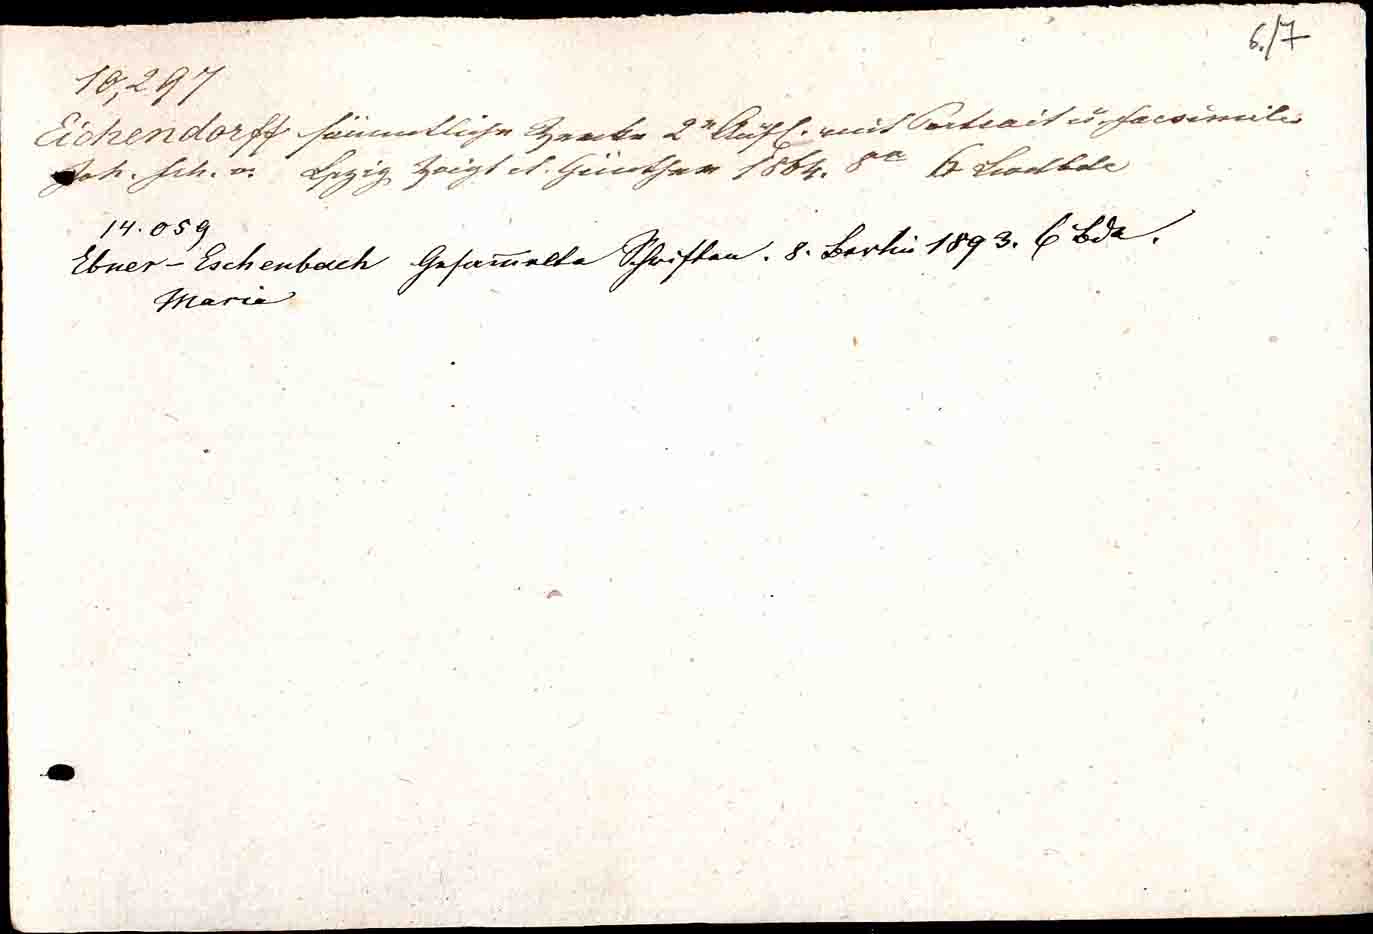 6./7
10,297
Eichendorff sämmtliche Werke 2e Aufl. mit Portrait u. Facsimile
Joh. Frh. v. Lpzig Voigt et. Günther 1864. 8vo 6
14.059
Ebner-Eschenbach Gesam̅elte Schriften. 8. Berlin 1893. 6 Bde.
Maria